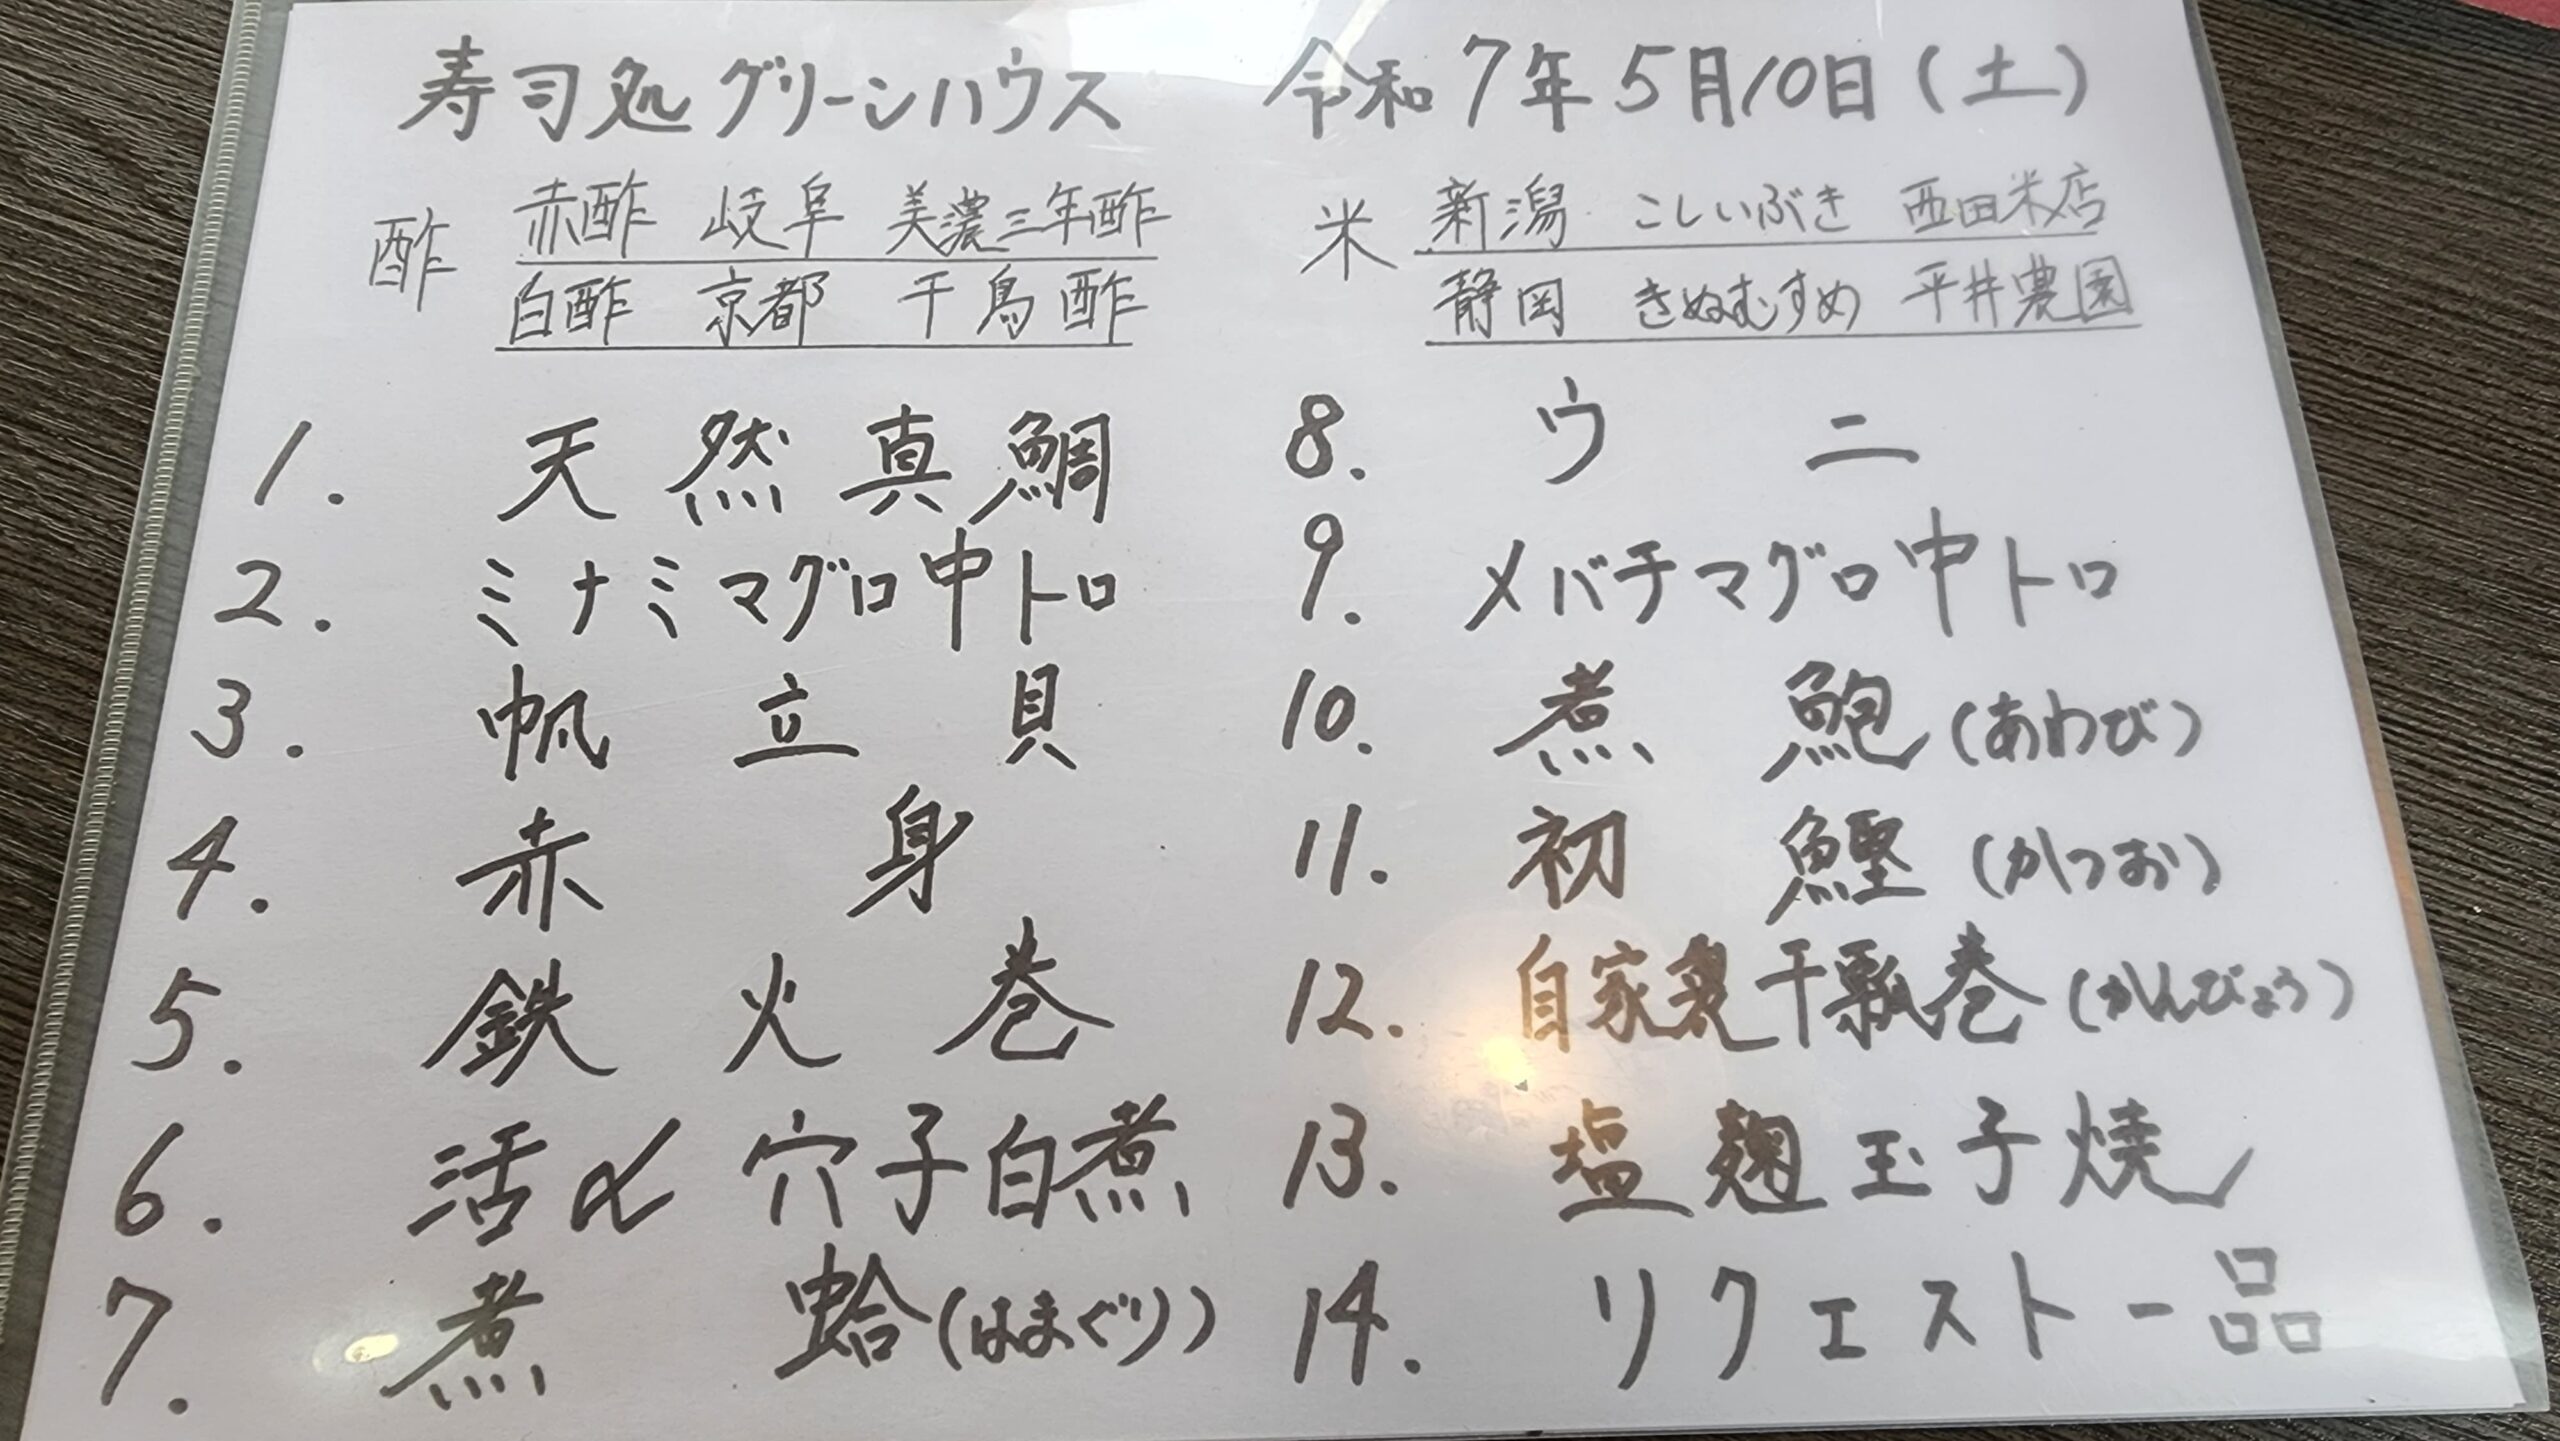 寿司処グリーンハウス 令和7年5月10日(土)
酢 赤酢 岐阜 美濃三年酢
白酢 京都 千鳥酢
米 新潟 こしいぶき 西田米店
静岡 きぬむすめ 平井農園
1. 天然真鯛
2. ミナミマグロ中トロ
3. 帆立貝
4. 赤身
5. 鉄火巻
6. 活〆穴子白煮
7. 煮蛤(はまぐり)
8. ウニ
9. メバチマグロ中トロ
10. 煮鮑(あわび)
11. 初鰹(かつお)
12. 自家製干瓢巻(かんぴょう)
13. 塩麹玉子焼
14. リクエスト一品